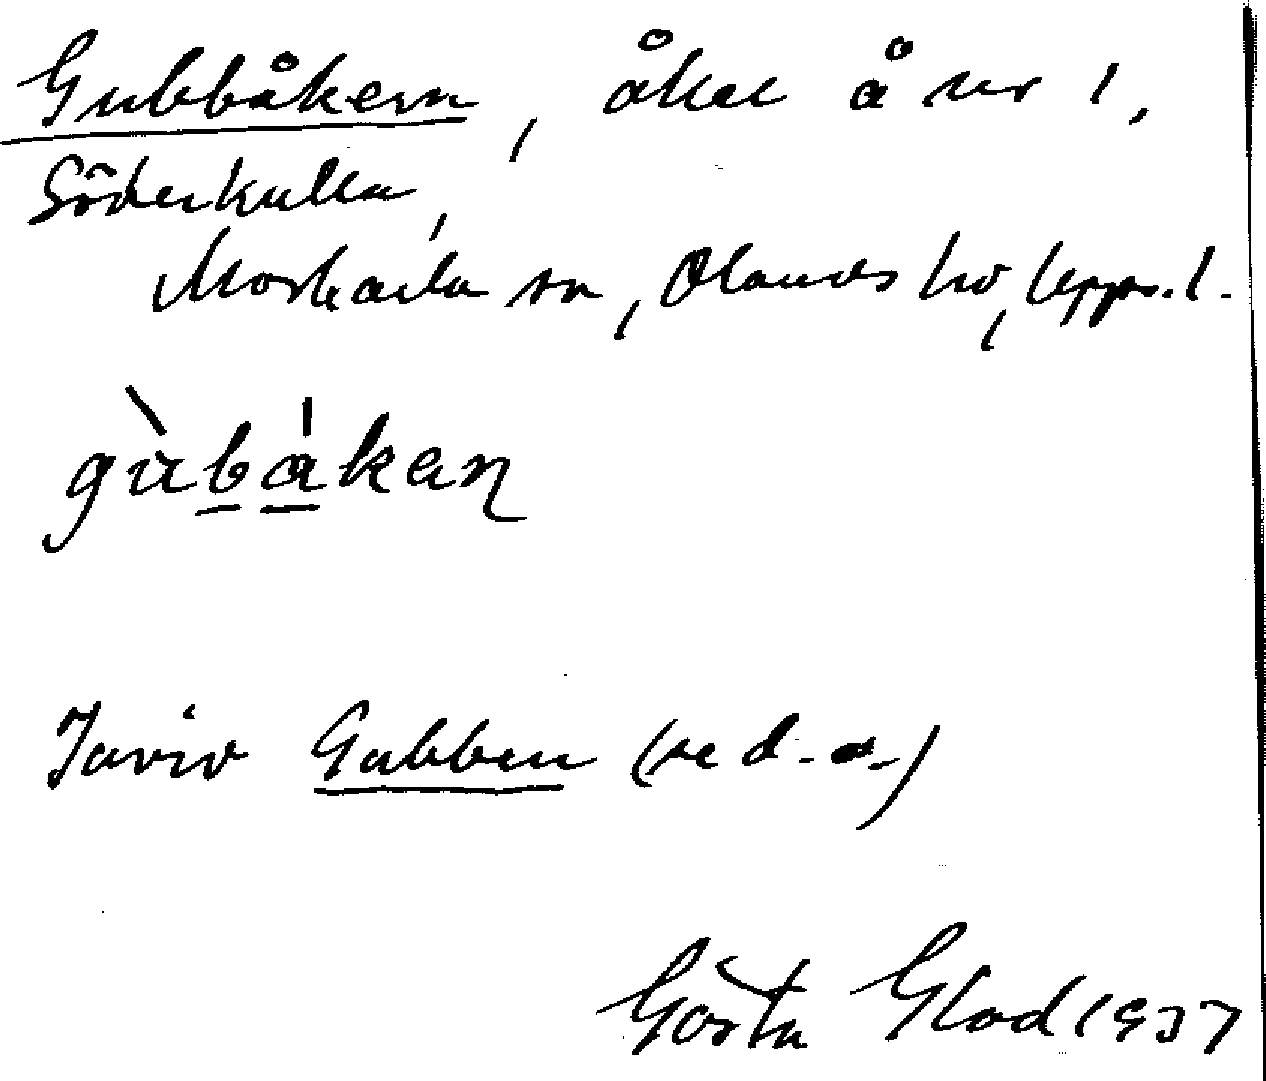 Gubbåkern, åker å nr 1,
Söderkulla,
Morkarla sn, Olands hd, Upps. l.
gùbåkaɳ
Jämför Gubben (se d. o.)
Gösta Glad 1937